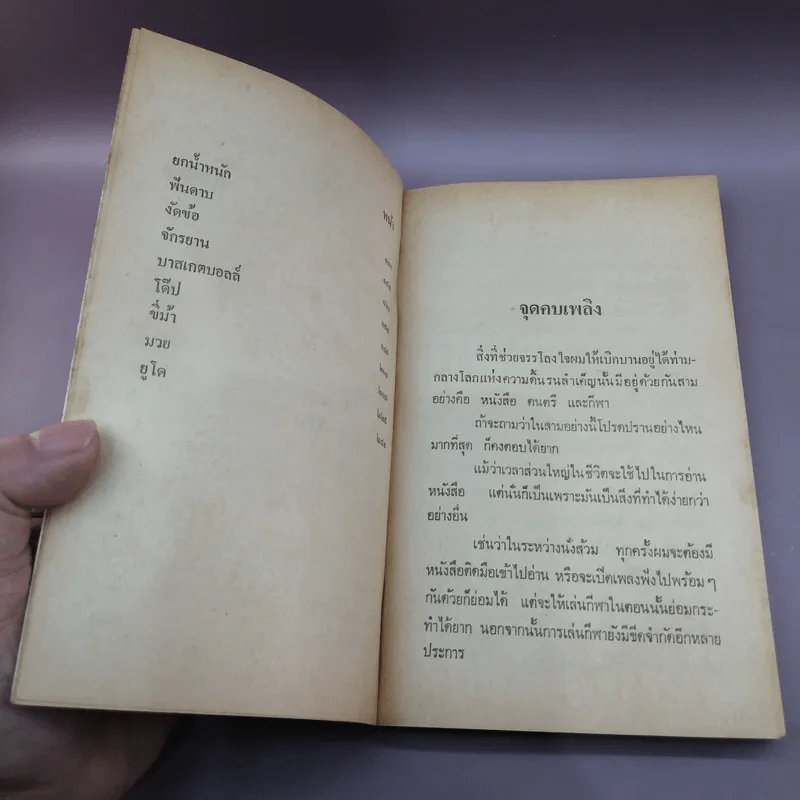 หน้า
ยกน้ำหนัก
ฟันดาบ
งัดข้อ
จักรยาน
บาสเกตบอลล์
โด๊ป
ขี่ม้า
มวย
ยูโด
จุดคบเพลิง
สิ่งที่ช่วยจรรโลงใจผมให้เบิกบานอยู่ได้ท่าม-
กลางโลกแห่งความดิ้นรนสำเค็ญนั้นมีอยู่ด้วยกันสาม
อย่างคือ หนังสือ ดนตรี และกีฬา
ถ้าจะถามว่าในสามอย่างนี้โปรดปรานอย่างไหน
มากที่สุด ก็คงตอบได้ยาก
แม้ว่าเวลาส่วนใหญ่ในชีวิตจะใช้ไปในการอ่าน
หนังสือ แต่นั่นก็เป็นเพราะมันเป็นสิ่งที่ทำได้ง่ายกว่า
อย่างอื่น
เช่นว่าในระหว่างนั่งส้วม ทุกครั้งผมจะต้องมี
หนังสือติดมือเข้าไปอ่าน หรือจะเปิดเพลงฟังไปพร้อมๆ
กันด้วยก็ย่อมได้ แต่จะให้เล่นกีฬาในตอนนั้นย่อมกระ-
ทำได้ยาก นอกจากนั้นการเล่นกีฬายังมีขีดจำกัดอีกหลาย
ประการ